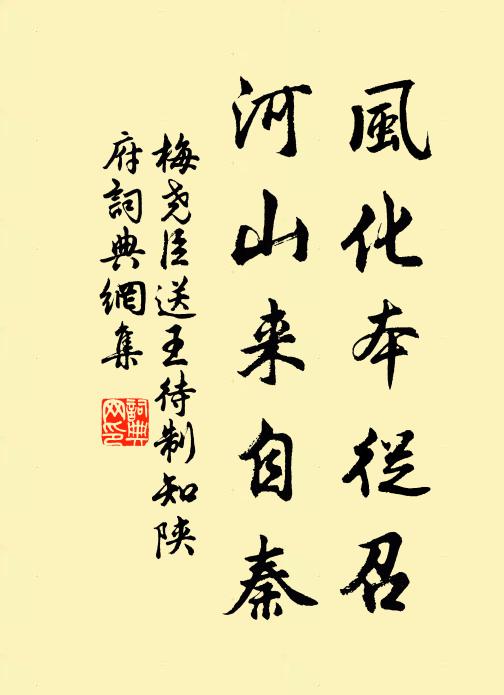 風化本從召
河山来自秦
梅尧臣送王待制知陕
府詞典網集
詞典
网印